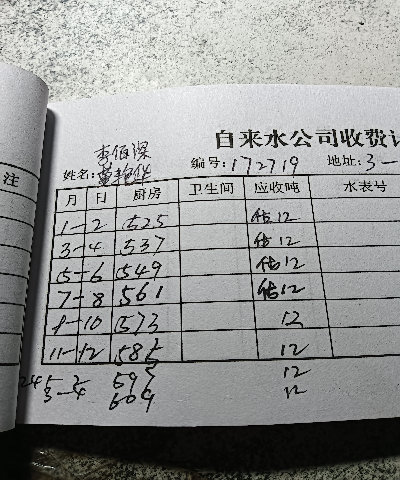 自来水公司收费计
姓名: 编号:172719 地址:3-
注
月 日 厨房 卫生间 应收吨 水表号
1-2 525 估12
3-4 537 估12
5-6 549 估12
7-8 561 估12
9-10 573 12
11-12 585 12
597 12
3-4 609 12